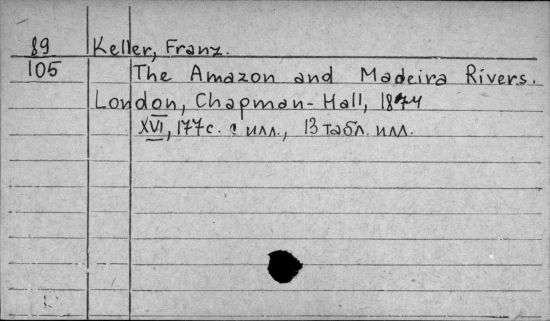 89 Keller, Franz.
105 The Amazon and Madeira Rivers.
London, Chapman-Hall, 1874
XVI, 177с. с илл., 13 табл. илл.